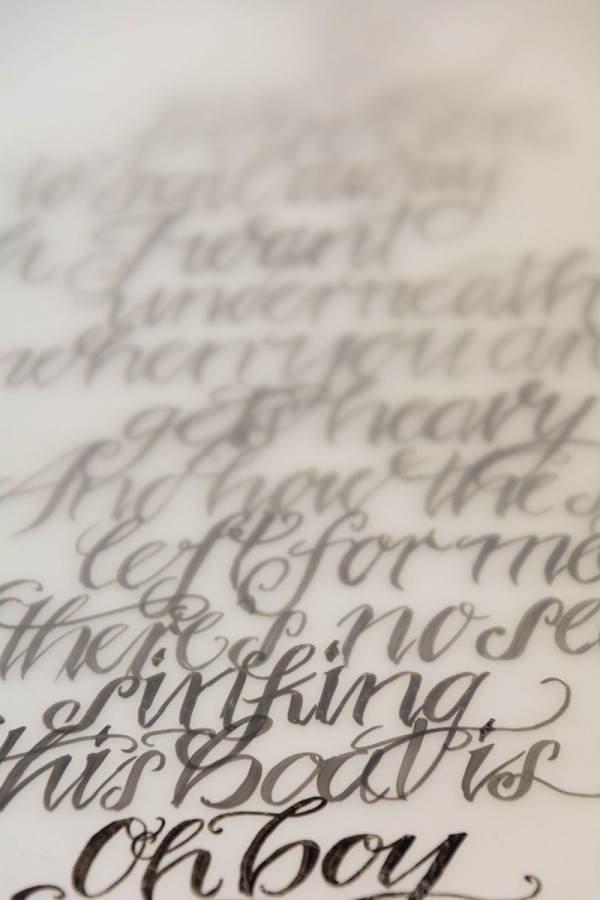 to sail away
I want
underneath
when you
gets heavy
And how the
left for me
there's no
sinking
this Boat is
Oh boy